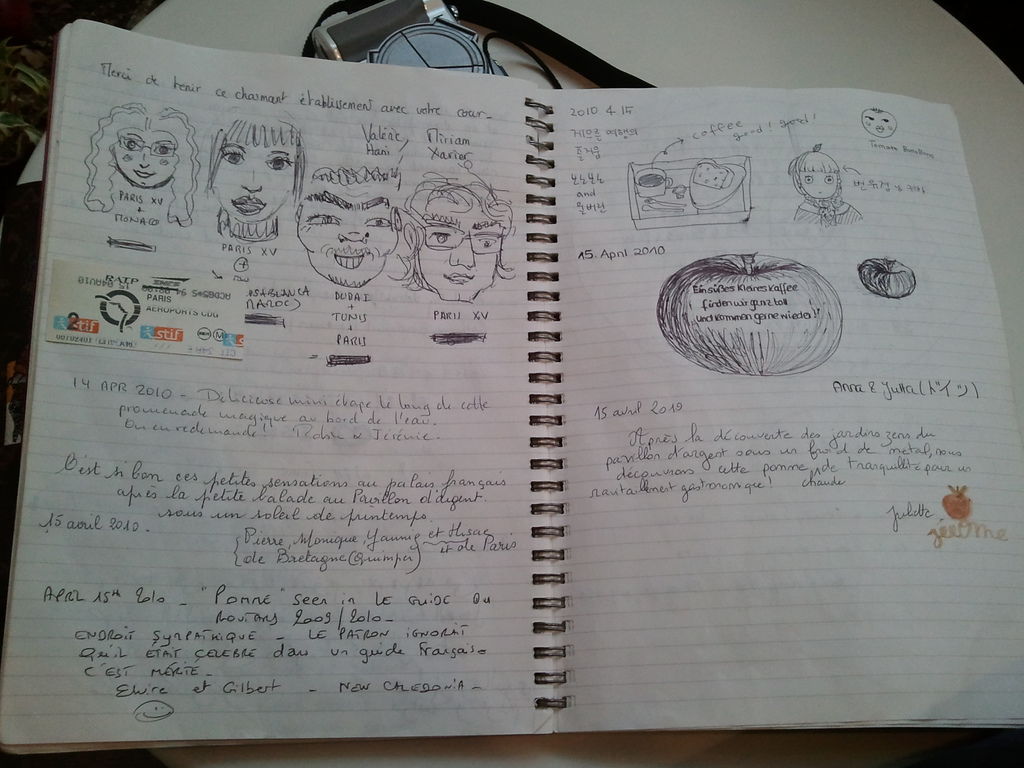 Merci de tenir ce charmant établissement avec votre cœur.
Valérie
Hani
Miriam
Xavier
PARIS XV
+
MONACO
PARIS XV
+
CASABLANCA
(MAROC)
DUBAI
+
TUNIS
+
PARIS
PARIS XV
RATP
PARIS
AEROPORTS CDG
stif
stif
14 APR 2010 - Délicieuse mini étape le long de cette
promenade magique au bord de l'eau.
On en redemande! Robin & Jérémie.
C'est si bon ces petites sensations au palais français
après la petite balade au Pavillon d'argent.
sous un soleil de printemps.
15 avril 2010.
Pierre, Monique, Yannig et Hisae
de Bretagne (Quimper) et de Paris
APRIL 15th 2010 - "POMME" seen in LE GUIDE DU
ROUTARD 2009/2010 -
ENDROIT SYMPATHIQUE - LE PATRON IGNORAIT
QU'IL ETAIT CELEBRE dans un guide Français.
C'EST MERITE -
Elvire et Gilbert - NEW CALEDONIA -
2010 4.14
게으른 여행의
즐거움
and
coffee
good! good!
Tomato
15. April 2010
Ein süßes kleines Kaffee
finden wir ganz toll
und kommen gerne wieder!
Anna & Jutta (ドイツ)
15 avril 2010
Après la découverte des jardins zens du
pavillon d'argent sous un froid de metal, nous
découvrons cette pomme de tranquillité pour un
ravitaillement gastronomique! chaude
Juliette
jérôme